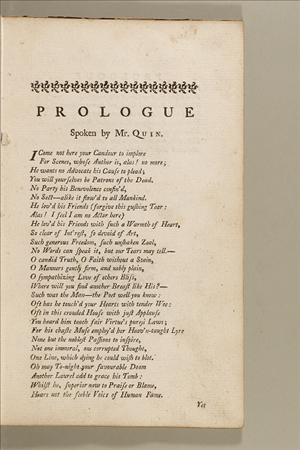 PROLOGUE
Spoken by Mr. QUIN.
I Come not here your Candour to implore
For Scenes, whose Author is, alas! no more;
He wants no Advocate his Cause to plead;
You will yourselves be Patrons of the Dead.
No Party his Benevolence confin'd,
No Sect—alike it flow'd to all Mankind.
He lov'd his Friends (forgive this gushing Tear:
Alas! I feel I am no Actor here)
He lov'd his Friends with such a Warmth of Heart,
So clear of Int'rest, so devoid of Art,
Such generous Freedom, such unshaken Zeal,
No Words can speak it, but our Tears may tell.—
O candid Truth, O Faith without a Stain,
O Manners gently firm, and nobly plain,
O sympathizing Love of others Bliss,
Where will you find another Breast like His?—
Such was the Man—the Poet well you know:
Oft has he touch'd your Hearts with tender Woe:
Oft in this crouded House with just Applause
You heard him teach fair Virtue's purest Laws;
For his chaste Muse employ'd her Heav'n-taught Lyre
None but the noblest Passions to inspire,
Not one immoral, one corrupted Thought,
One Line, which dying he could wish to blot.
Oh may To-night your favourable Doom
Another Laurel add to grace his Tomb:
Whilst he, superior now to Praise or Blame,
Hears not the feeble Voice of Human Fame.
Yet